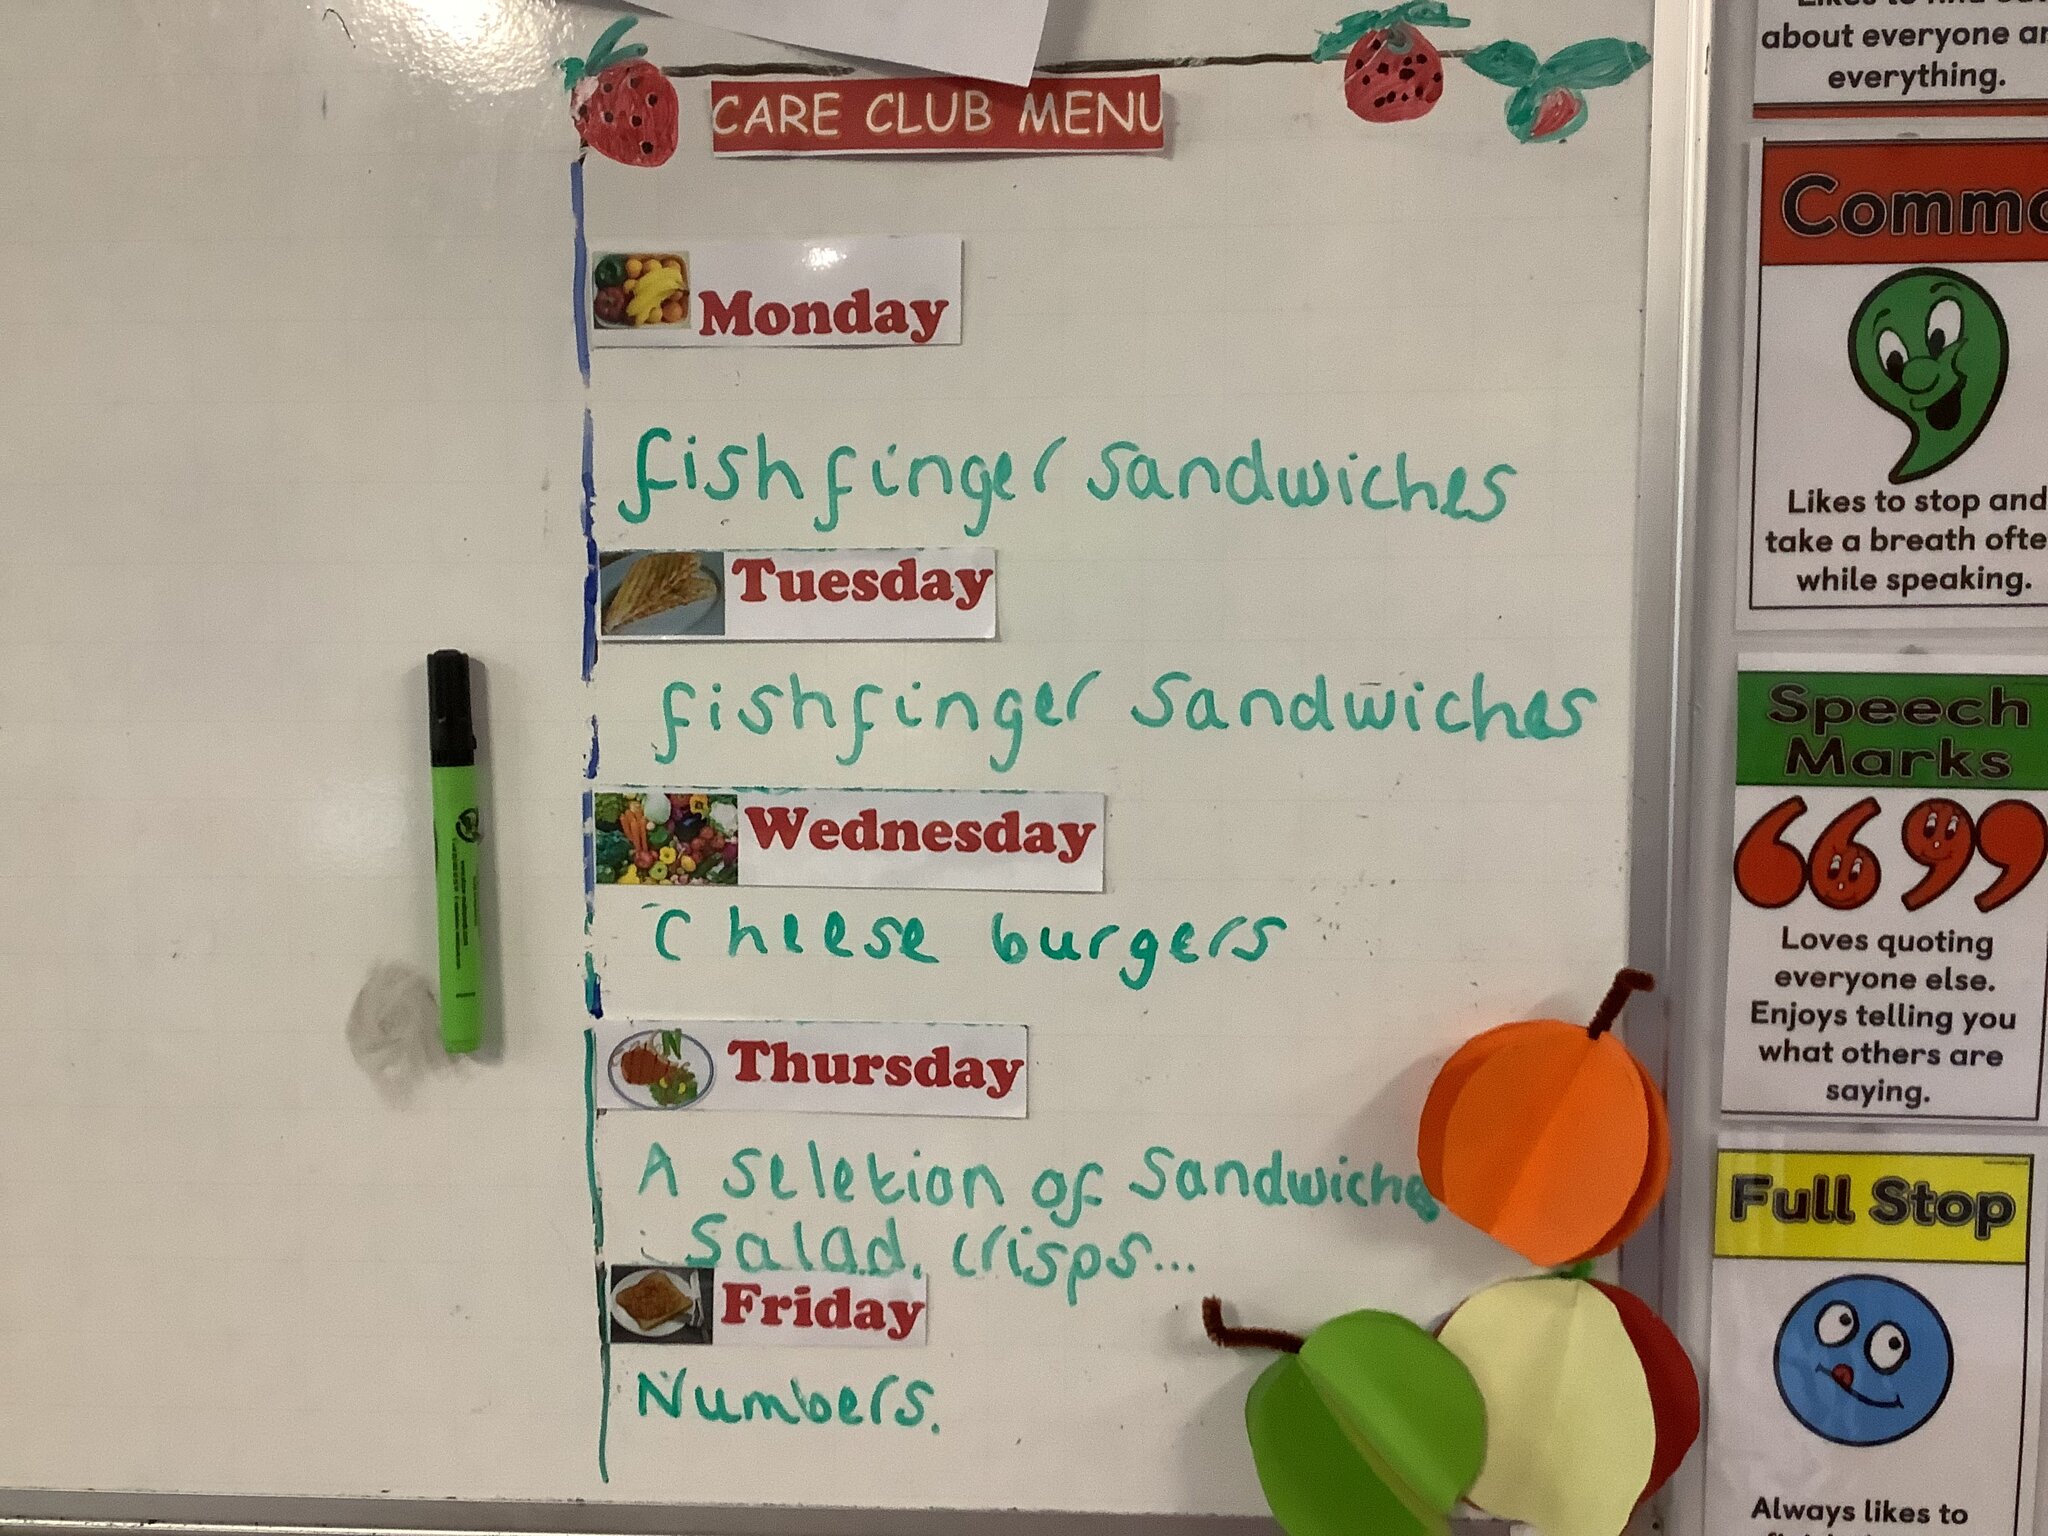 CARE CLUB MENU
Monday
fishfinger sandwiches
Tuesday
fishfinger sandwiches
Wednesday
Cheese burgers
Thursday
A seletion of sandwiches
salad, crisps...
Friday
Numbers.
about everyone
everything.
Likes to stop and
take a breath
while speaking.
Speech
Marks
66 99
Loves quoting
everyone else.
Enjoys telling you
what others are
saying.
Full Stop
Always likes to